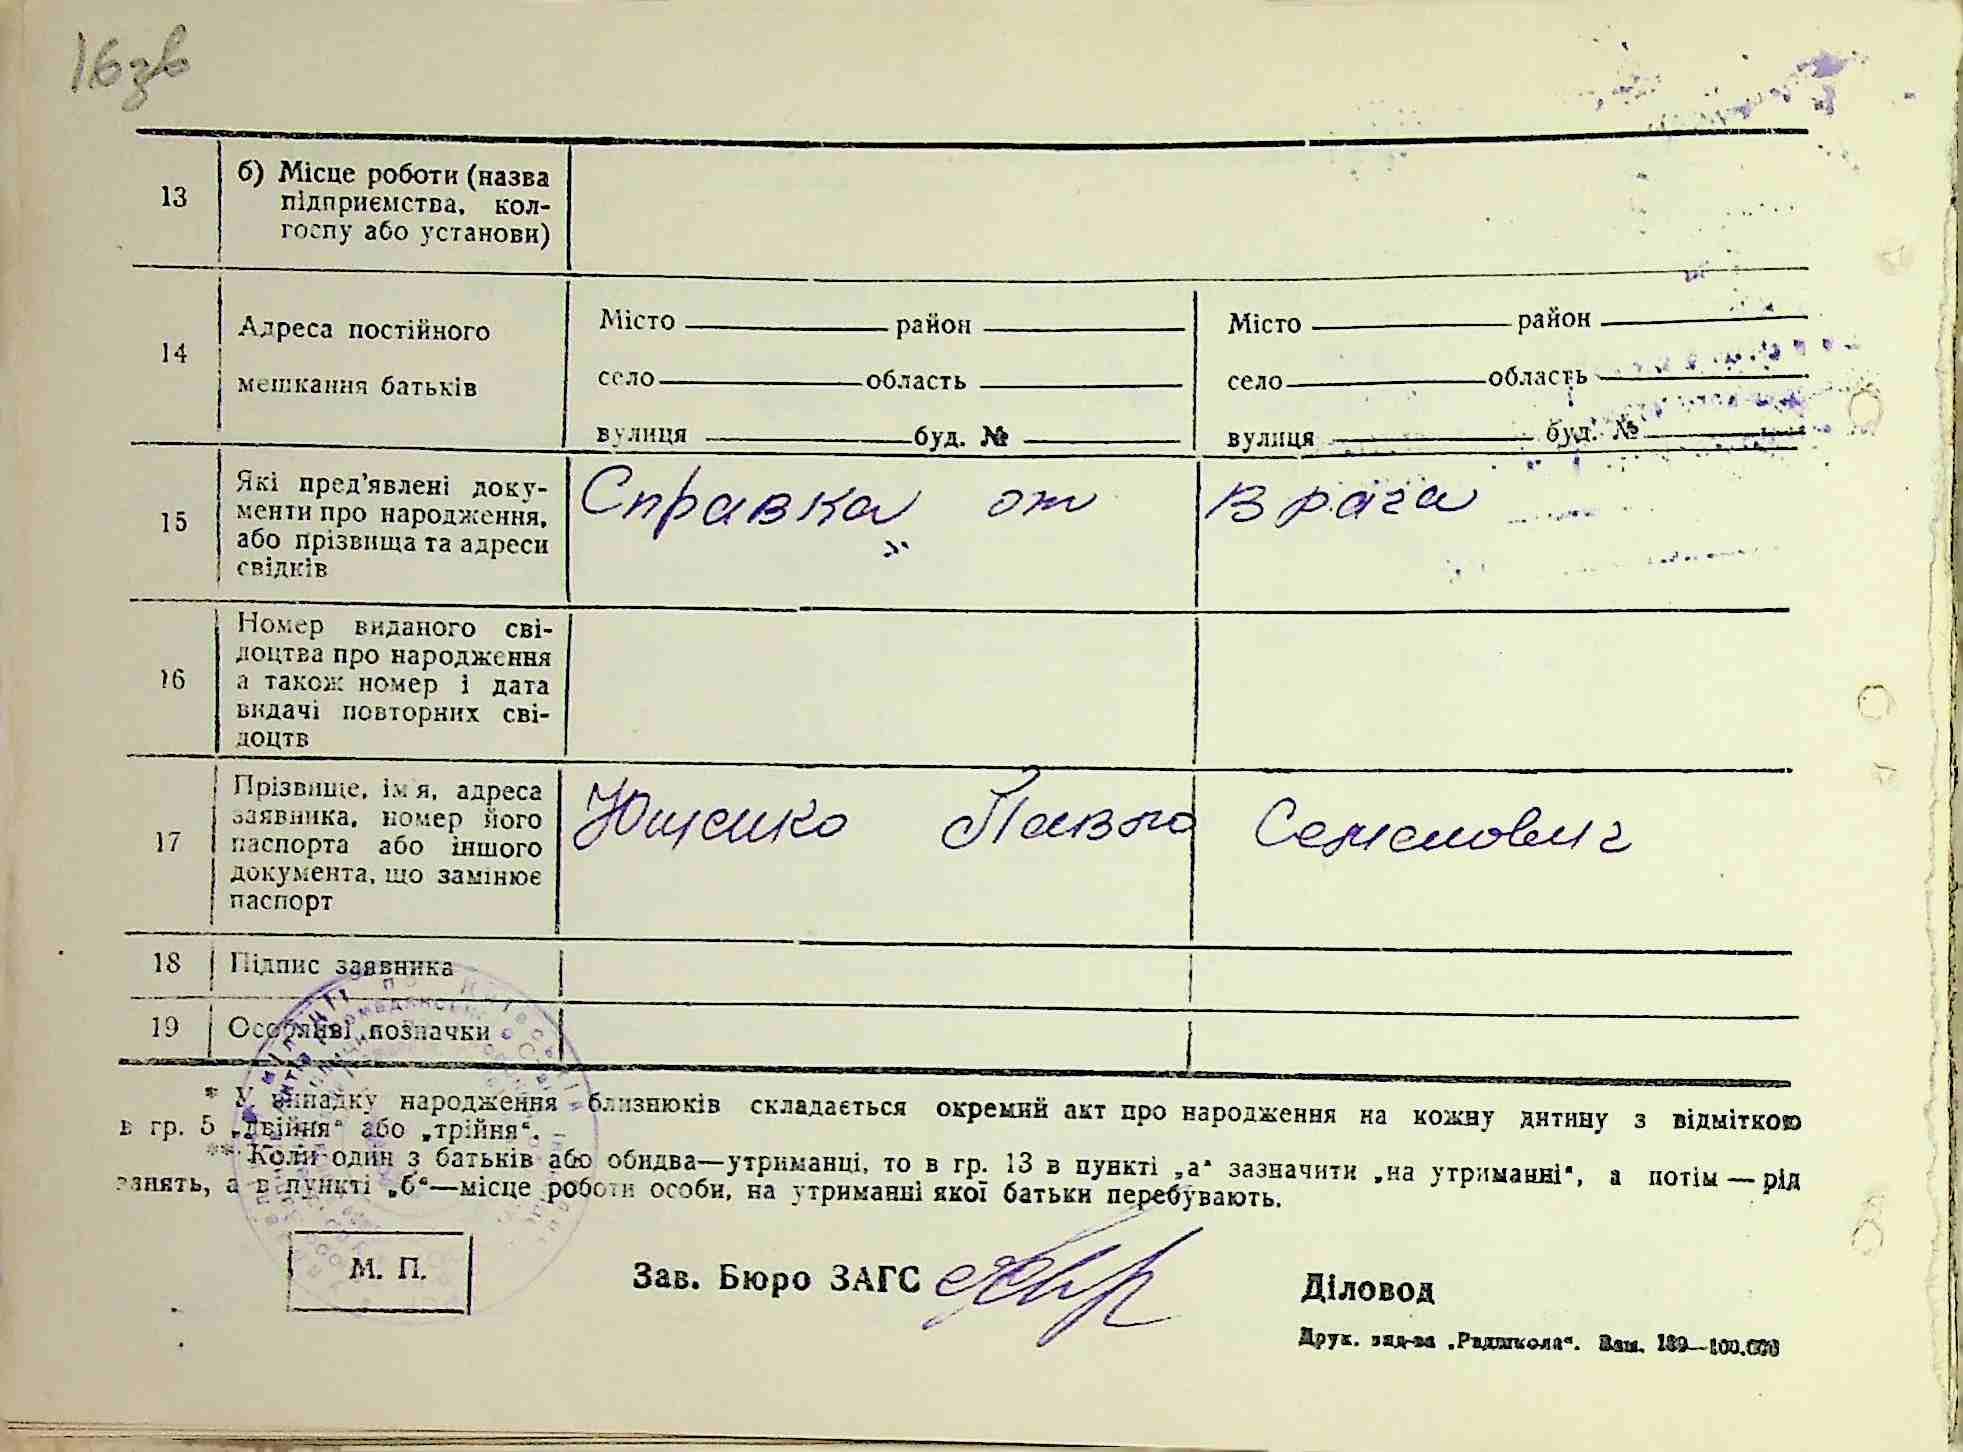 16зв
13 б) Місце роботи (назва
підприємства, кол-
госпу або установи)
14 Адреса постійного
мешкання батьків
Місто район
село область
вулиця буд. №
Місто район
село область
вулиця буд. №
15 Які пред'явлені доку-
менти про народження,
або прізвища та адреси
свідків
Справка от врача
16 Номер виданого сві-
доцтва про народження
а також номер і дата
видачі повторних сві-
доцтв
17 Прізвище, ім'я, адреса
заявника, номер його
паспорта або іншого
документа, що замінює
паспорт
Ющенко Павло Семенович
18 Підпис заявника
19 Особливі позначки
* У випадку народження близнюків складається окремий акт про народження на кожну дитину з відміткою
в гр. 5 „двійня“ або „трійня“.
** Коли один з батьків або обидва—утриманці, то в гр. 13 в пункті „а“ зазначити „на утриманні“, а потім — рід
занять, а в пункті „б“—місце роботи особи, на утриманні якої батьки перебувають.
М. П.
Зав. Бюро ЗАГС
Діловод
Друк. вид-ва „Радшкола“. Зам. 189—100.000